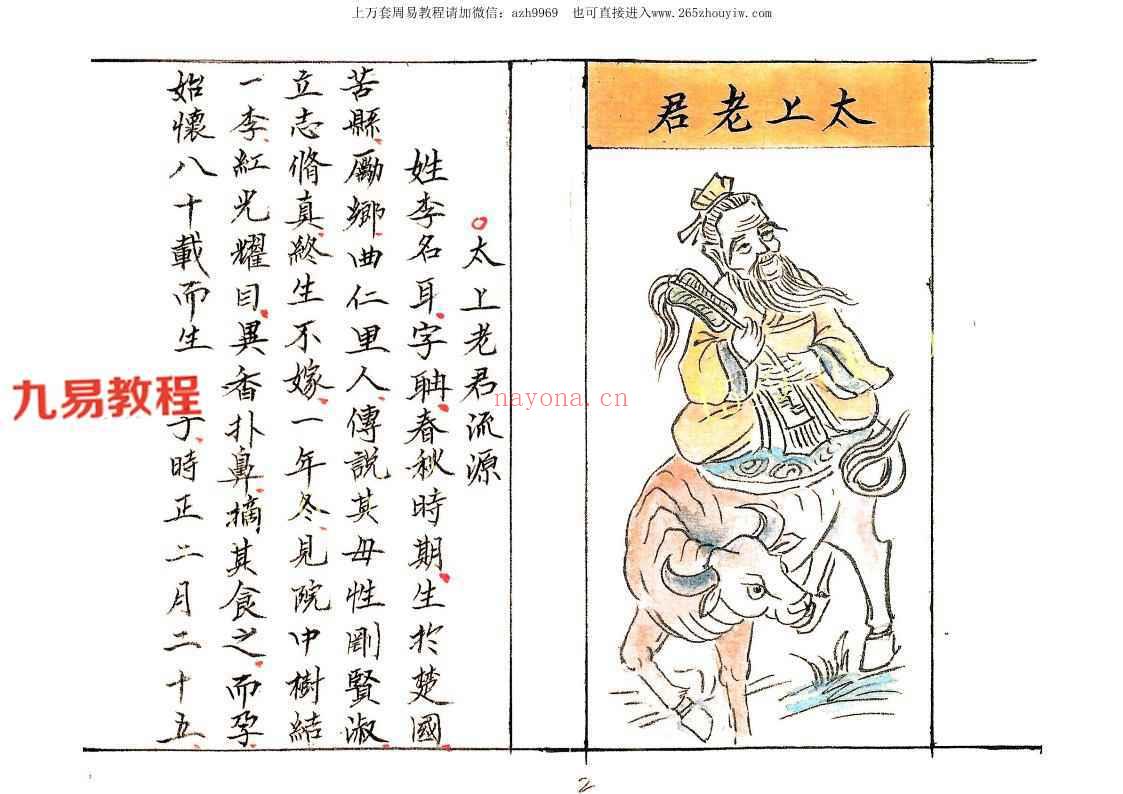 上万套周易教程请加微信：azh9969 也可直接进入www.265zhouyiw.com
太上老君
○太上老君流源
姓李名耳、字聃、春秋時期、生於楚國、
苦縣、勵鄉、曲仁里人、傳說其母性剛賢淑、
立志脩真、終生不嫁、一年冬、見院中樹結
一李、紅光耀目、異香扑鼻、摘其食之、而孕、
始懷八十載而生于、時正二月二十五、
九易教程
nayona.cn
2